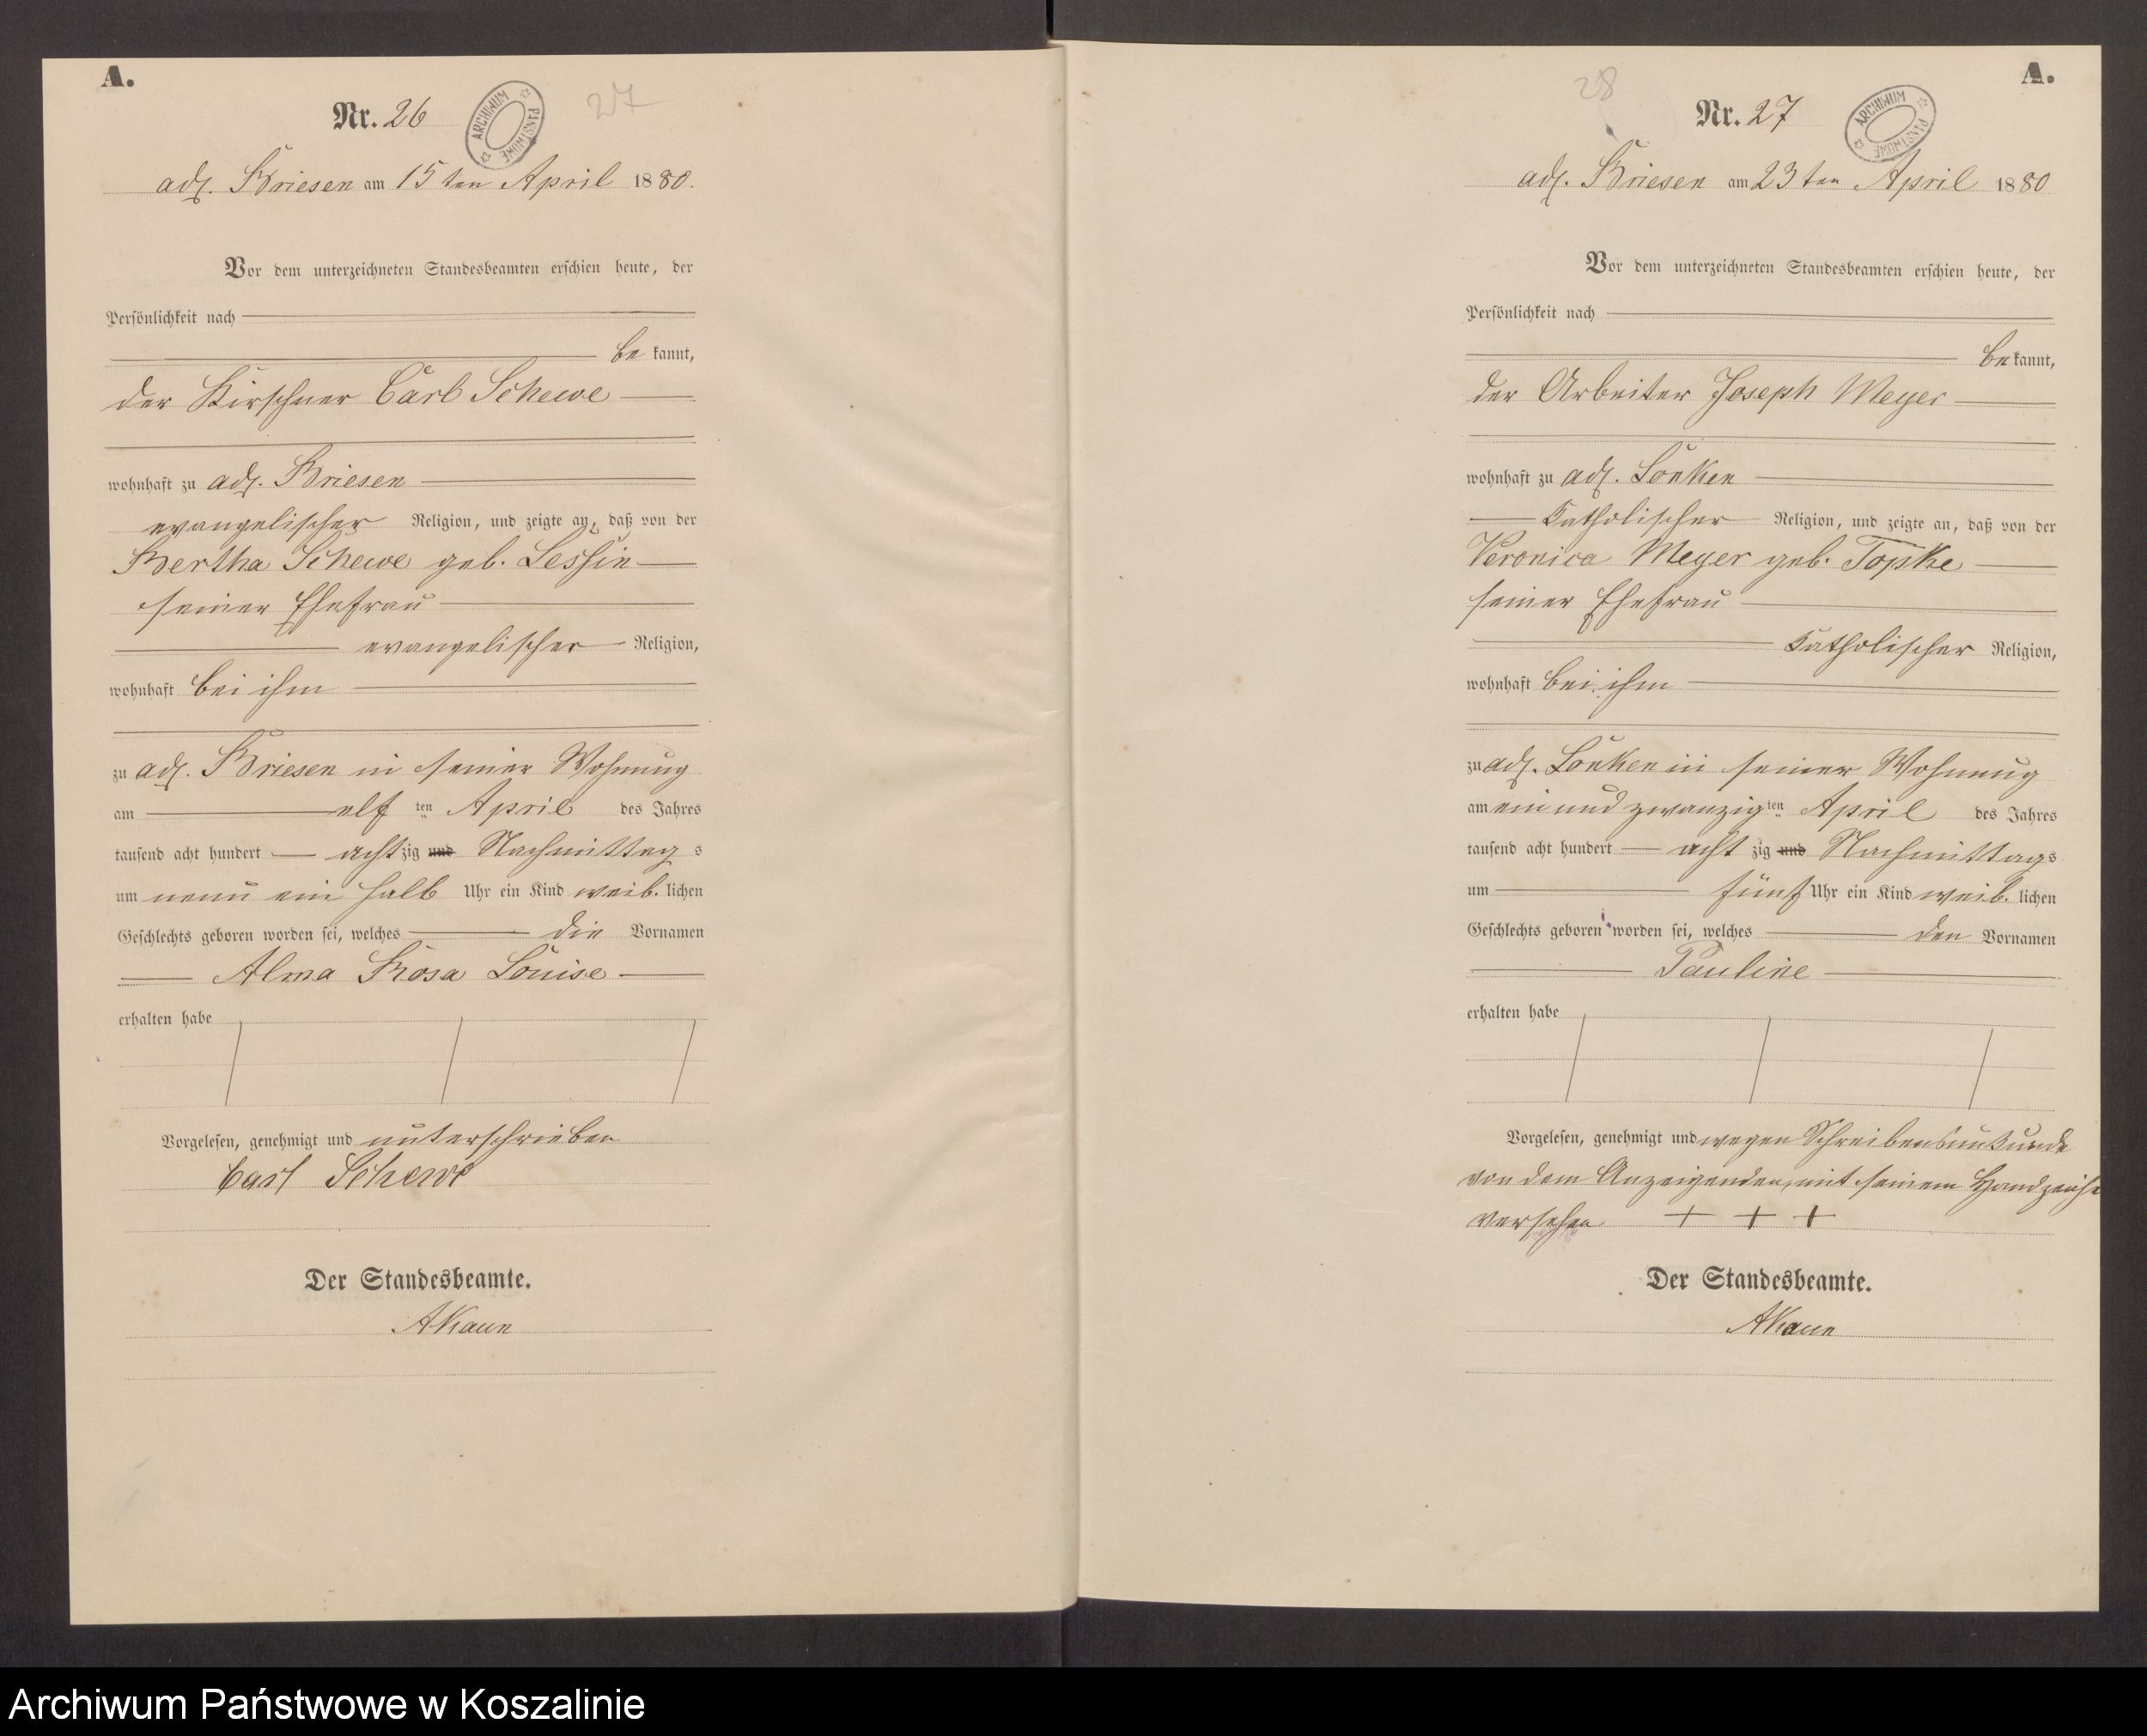 A.
Nr. 26
27
ARCHIWUM PAŃSTWOWE
adl. Briesen am 15ten April 1880.
Vor dem unterzeichneten Standesbeamten erschien heute, der
Persönlichkeit nach
be kannt,
der Kirschner Carl Schewe
wohnhaft zu adl. Briesen
evangelischer Religion, und zeigte an, daß von der
Bertha Schewe geb. Lessin
seiner Ehefrau
evangelischer Religion,
wohnhaft bei ihm
zu adl. Briesen in seiner Wohnung
am elf ten April des Jahres
tausend acht hundert acht zig und Nachmittag s
um neun ein halb Uhr ein Kind weib. lichen
Geschlechts geboren worden sei, welches die Vornamen
Alma Rosa Louise
erhalten habe
Vorgelesen, genehmigt und unterschrieben
Carl Schewe
Der Standesbeamte.
AKaun
A.
28
Nr. 27
ARCHIWUM PAŃSTWOWE
adl. Briesen am 23ten April 1880
Vor dem unterzeichneten Standesbeamten erschien heute, der
Persönlichkeit nach
be kannt,
der Arbeiter Joseph Meyer
wohnhaft zu adl. Lonken
Katholischer Religion, und zeigte an, daß von der
Veronica Meyer geb. Topke
seiner Ehefrau
Katholischer Religion,
wohnhaft bei ihm
zu adl. Lonken in seiner Wohnung
am ein und zwanzig ten April des Jahres
tausend acht hundert acht zig und Nachmittags
um fünf Uhr ein Kind weib. lichen
Geschlechts geboren worden sei, welches den Vornamen
Pauline
erhalten habe
Vorgelesen, genehmigt und wegen Schreibensunkunde
von dem Anzeigenden, mit seinem Handzeichen
versehen + + +
Der Standesbeamte.
AKaun
Archiwum Państwowe w Koszalinie